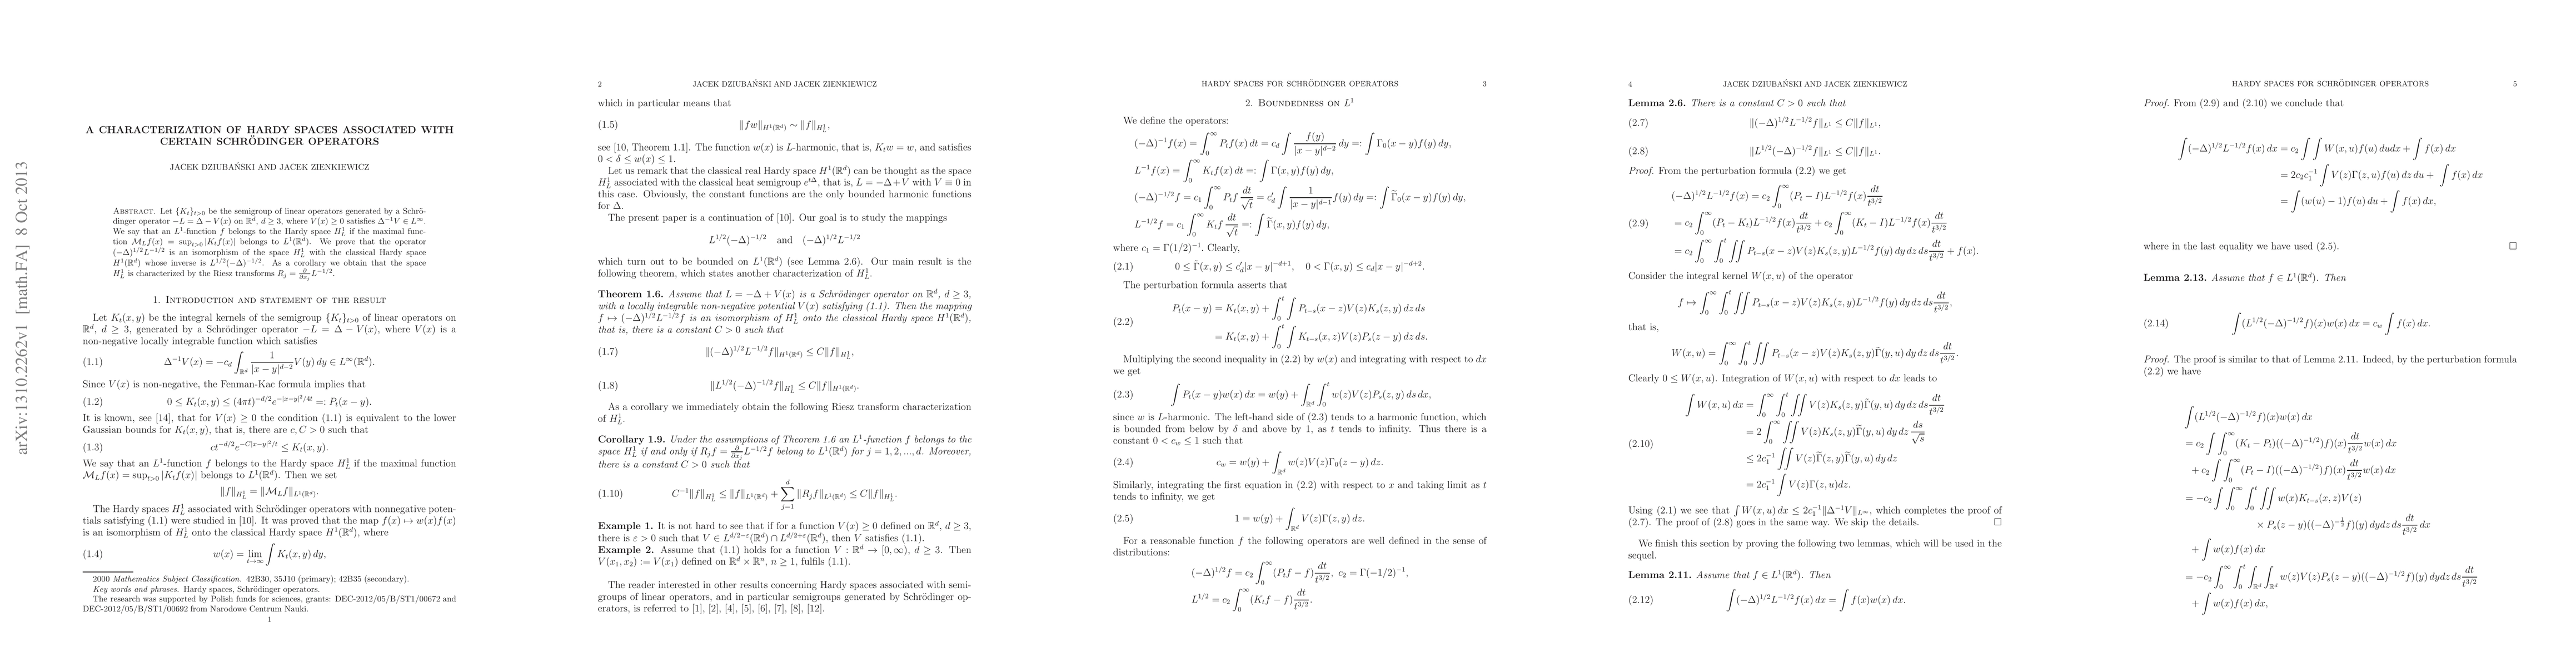 arXiv:1310.2262v1 [math.FA] 8 Oct 2013
A CHARACTERIZATION OF HARDY SPACES ASSOCIATED WITH
CERTAIN SCHRÖDINGER OPERATORS
JACEK DZIUBAŃSKI AND JACEK ZIENKIEWICZ
Abstract. Let {K_t}_{t>0} be the semigroup of linear operators generated by a Schrö-
dinger operator −L = Δ − V(x) on ℝ^d, d ≥ 3, where V(x) ≥ 0 satisfies Δ^{−1}V ∈ L^∞.
We say that an L^1-function f belongs to the Hardy space H^1_L if the maximal func-
tion M_L f(x) = sup_{t>0} |K_t f(x)| belongs to L^1(ℝ^d). We prove that the operator
(−Δ)^{1/2}L^{−1/2} is an isomorphism of the space H^1_L with the classical Hardy space
H^1(ℝ^d) whose inverse is L^{1/2}(−Δ)^{−1/2}. As a corollary we obtain that the space
H^1_L is characterized by the Riesz transforms R_j = ∂/∂x_j L^{−1/2}.
1. Introduction and statement of the result
Let K_t(x, y) be the integral kernels of the semigroup {K_t}_{t>0} of linear operators on
ℝ^d, d ≥ 3, generated by a Schrödinger operator −L = Δ − V(x), where V(x) is a
non-negative locally integrable function which satisfies
(1.1) Δ^{−1}V(x) = −c_d ∫_{ℝ^d} 1/|x − y|^{d−2} V(y) dy ∈ L^∞(ℝ^d).
Since V(x) is non-negative, the Fenman-Kac formula implies that
(1.2) 0 ≤ K_t(x, y) ≤ (4πt)^{−d/2}e^{−|x−y|^2/4t} =: P_t(x − y).
It is known, see [14], that for V(x) ≥ 0 the condition (1.1) is equivalent to the lower
Gaussian bounds for K_t(x, y), that is, there are c, C > 0 such that
(1.3) ct^{−d/2}e^{−C|x−y|^2/t} ≤ K_t(x, y).
We say that an L^1-function f belongs to the Hardy space H^1_L if the maximal function
M_L f(x) = sup_{t>0} |K_t f(x)| belongs to L^1(ℝ^d). Then we set
‖f‖_{H^1_L} = ‖M_L f‖_{L^1(ℝ^d)}.
The Hardy spaces H^1_L associated with Schrödinger operators with nonnegative poten-
tials satisfying (1.1) were studied in [10]. It was proved that the map f(x) ↦ w(x)f(x)
is an isomorphism of H^1_L onto the classical Hardy space H^1(ℝ^d), where
(1.4) w(x) = lim_{t→∞} ∫ K_t(x, y) dy,
2000 Mathematics Subject Classification. 42B30, 35J10 (primary); 42B35 (secondary).
Key words and phrases. Hardy spaces, Schrödinger operators.
The research was supported by Polish funds for sciences, grants: DEC-2012/05/B/ST1/00672 and
DEC-2012/05/B/ST1/00692 from Narodowe Centrum Nauki.
1
2 JACEK DZIUBAŃSKI AND JACEK ZIENKIEWICZ
which in particular means that
(1.5) ‖fw‖_{H^1(ℝ^d)} ∼ ‖f‖_{H^1_L},
see [10, Theorem 1.1]. The function w(x) is L-harmonic, that is, K_t w = w, and satisfies
0 < δ ≤ w(x) ≤ 1.
Let us remark that the classical real Hardy space H^1(ℝ^d) can be thought as the space
H^1_L associated with the classical heat semigroup e^{tΔ}, that is, L = −Δ + V with V ≡ 0 in
this case. Obviously, the constant functions are the only bounded harmonic functions
for Δ.
The present paper is a continuation of [10]. Our goal is to study the mappings
L^{1/2}(−Δ)^{−1/2} and (−Δ)^{1/2}L^{−1/2}
which turn out to be bounded on L^1(ℝ^d) (see Lemma 2.6). Our main result is the
following theorem, which states another characterization of H^1_L.
Theorem 1.6. Assume that L = −Δ + V(x) is a Schrödinger operator on ℝ^d, d ≥ 3,
with a locally integrable non-negative potential V(x) satisfying (1.1). Then the mapping
f ↦ (−Δ)^{1/2}L^{−1/2}f is an isomorphism of H^1_L onto the classical Hardy space H^1(ℝ^d),
that is, there is a constant C > 0 such that
(1.7) ‖(−Δ)^{1/2}L^{−1/2}f‖_{H^1(ℝ^d)} ≤ C‖f‖_{H^1_L},
(1.8) ‖L^{1/2}(−Δ)^{−1/2}f‖_{H^1_L} ≤ C‖f‖_{H^1(ℝ^d)}.
As a corollary we immediately obtain the following Riesz transform characterization
of H^1_L.
Corollary 1.9. Under the assumptions of Theorem 1.6 an L^1-function f belongs to the
space H^1_L if and only if R_j f = ∂/∂x_j L^{−1/2}f belong to L^1(ℝ^d) for j = 1, 2, ..., d. Moreover,
there is a constant C > 0 such that
(1.10) C^{−1}‖f‖_{H^1_L} ≤ ‖f‖_{L^1(ℝ^d)} + ∑_{j=1}^d ‖R_j f‖_{L^1(ℝ^d)} ≤ C‖f‖_{H^1_L}.
Example 1. It is not hard to see that if for a function V(x) ≥ 0 defined on ℝ^d, d ≥ 3,
there is ε > 0 such that V ∈ L^{d/2−ε}(ℝ^d) ∩ L^{d/2+ε}(ℝ^d), then V satisfies (1.1).
Example 2. Assume that (1.1) holds for a function V : ℝ^d → [0, ∞), d ≥ 3. Then
V(x_1, x_2) := V(x_1) defined on ℝ^d × ℝ^n, n ≥ 1, fulfils (1.1).
The reader interested in other results concerning Hardy spaces associated with semi-
groups of linear operators, and in particular semigroups generated by Schrödinger op-
erators, is referred to [1], [2], [4], [5], [6], [7], [8], [12].
HARDY SPACES FOR SCHRÖDINGER OPERATORS 3
2. Boundedness on L^1
We define the operators:
(−Δ)^{−1}f(x) = ∫_0^∞ P_t f(x) dt = c_d ∫ f(y)/|x − y|^{d−2} dy =: ∫ Γ_0(x − y)f(y) dy,
L^{−1}f(x) = ∫_0^∞ K_t f(x) dt =: ∫ Γ(x, y)f(y) dy,
(−Δ)^{−1/2}f = c_1 ∫_0^∞ P_t f dt/√t = c'_d ∫ 1/|x − y|^{d−1} f(y) dy =: ∫ Γ̃_0(x − y)f(y) dy,
L^{−1/2}f = c_1 ∫_0^∞ K_t f dt/√t =: ∫ Γ̃(x, y)f(y) dy,
where c_1 = Γ(1/2)^{−1}. Clearly,
(2.1) 0 ≤ Γ̃(x, y) ≤ c'_d|x − y|^{−d+1}, 0 < Γ(x, y) ≤ c_d|x − y|^{−d+2}.
The perturbation formula asserts that
(2.2) P_t(x − y) = K_t(x, y) + ∫_0^t ∫ P_{t−s}(x − z)V(z)K_s(z, y) dz ds
= K_t(x, y) + ∫_0^t ∫ K_{t−s}(x, z)V(z)P_s(z − y) dz ds.
Multiplying the second inequality in (2.2) by w(x) and integrating with respect to dx
we get
(2.3) ∫ P_t(x − y)w(x) dx = w(y) + ∫_{ℝ^d} ∫_0^t w(z)V(z)P_s(z, y) ds dx,
since w is L-harmonic. The left-hand side of (2.3) tends to a harmonic function, which
is bounded from below by δ and above by 1, as t tends to infinity. Thus there is a
constant 0 < c_w ≤ 1 such that
(2.4) c_w = w(y) + ∫_{ℝ^d} w(z)V(z)Γ_0(z − y) dz.
Similarly, integrating the first equation in (2.2) with respect to x and taking limit as t
tends to infinity, we get
(2.5) 1 = w(y) + ∫_{ℝ^d} V(z)Γ(z, y) dz.
For a reasonable function f the following operators are well defined in the sense of
distributions:
(−Δ)^{1/2}f = c_2 ∫_0^∞ (P_t f − f) dt/t^{3/2}, c_2 = Γ(−1/2)^{−1},
L^{1/2} = c_2 ∫_0^∞ (K_t f − f) dt/t^{3/2}.
4 JACEK DZIUBAŃSKI AND JACEK ZIENKIEWICZ
Lemma 2.6. There is a constant C > 0 such that
(2.7) ‖(−Δ)^{1/2}L^{−1/2}f‖_{L^1} ≤ C‖f‖_{L^1},
(2.8) ‖L^{1/2}(−Δ)^{−1/2}f‖_{L^1} ≤ C‖f‖_{L^1}.
Proof. From the perturbation formula (2.2) we get
(−Δ)^{1/2}L^{−1/2}f(x) = c_2 ∫_0^∞ (P_t − I)L^{−1/2}f(x) dt/t^{3/2}
(2.9) = c_2 ∫_0^∞ (P_t − K_t)L^{−1/2}f(x) dt/t^{3/2} + c_2 ∫_0^∞ (K_t − I)L^{−1/2}f(x) dt/t^{3/2}
= c_2 ∫_0^∞ ∫_0^t ∫∫ P_{t−s}(x − z)V(z)K_s(z, y)L^{−1/2}f(y) dy dz ds dt/t^{3/2} + f(x).
Consider the integral kernel W(x, u) of the operator
f ↦ ∫_0^∞ ∫_0^t ∫∫ P_{t−s}(x − z)V(z)K_s(z, y)L^{−1/2}f(y) dy dz ds dt/t^{3/2},
that is,
W(x, u) = ∫_0^∞ ∫_0^t ∫∫ P_{t−s}(x − z)V(z)K_s(z, y)Γ̃(y, u) dy dz ds dt/t^{3/2}.
Clearly 0 ≤ W(x, u). Integration of W(x, u) with respect to dx leads to
∫ W(x, u) dx = ∫_0^∞ ∫_0^t ∫∫ V(z)K_s(z, y)Γ̃(y, u) dy dz ds dt/t^{3/2}
= 2 ∫_0^∞ ∫∫ V(z)K_s(z, y)Γ̃(y, u) dy dz ds/√s
(2.10) ≤ 2c_1^{−1} ∫∫ V(z)Γ̃(z, y)Γ̃(y, u) dy dz
= 2c_1^{−1} ∫ V(z)Γ(z, u)dz.
Using (2.1) we see that ∫ W(x, u) dx ≤ 2c_1^{−1}‖Δ^{−1}V‖_{L^∞}, which completes the proof of
(2.7). The proof of (2.8) goes in the same way. We skip the details. □
We finish this section by proving the following two lemmas, which will be used in the
sequel.
Lemma 2.11. Assume that f ∈ L^1(ℝ^d). Then
(2.12) ∫ (−Δ)^{1/2}L^{−1/2}f(x) dx = ∫ f(x)w(x) dx.
HARDY SPACES FOR SCHRÖDINGER OPERATORS 5
Proof. From (2.9) and (2.10) we conclude that
∫ (−Δ)^{1/2}L^{−1/2}f(x) dx = c_2 ∫ ∫ W(x, u)f(u) dudx + ∫ f(x) dx
= 2c_2c_1^{−1} ∫ V(z)Γ(z, u)f(u) dz du + ∫ f(x) dx
= ∫ (w(u) − 1)f(u) du + ∫ f(x) dx,
where in the last equality we have used (2.5). □
Lemma 2.13. Assume that f ∈ L^1(ℝ^d). Then
(2.14) ∫ (L^{1/2}(−Δ)^{−1/2}f)(x)w(x) dx = c_w ∫ f(x) dx.
Proof. The proof is similar to that of Lemma 2.11. Indeed, by the perturbation formula
(2.2) we have
∫ (L^{1/2}(−Δ)^{−1/2}f)(x)w(x) dx
= c_2 ∫ ∫_0^∞ (K_t − P_t)((−Δ)^{−1/2})f)(x) dt/t^{3/2} w(x) dx
+ c_2 ∫ ∫_0^∞ (P_t − I)((−Δ)^{−1/2}f)(x) dt/t^{3/2} w(x) dx
= −c_2 ∫ ∫_0^∞ ∫_0^t ∫∫ w(x)K_{t−s}(x, z)V(z)
× P_s(z − y)((−Δ)^{−1/2}f)(y) dydz ds dt/t^{3/2} dx
+ ∫ w(x)f(x) dx
= −c_2 ∫_0^∞ ∫_0^t ∫_{ℝ^d} ∫_{ℝ^d} w(z)V(z)P_s(z − y)((−Δ)^{−1/2}f)(y) dydz ds dt/t^{3/2}
+ ∫ w(x)f(x) dx,